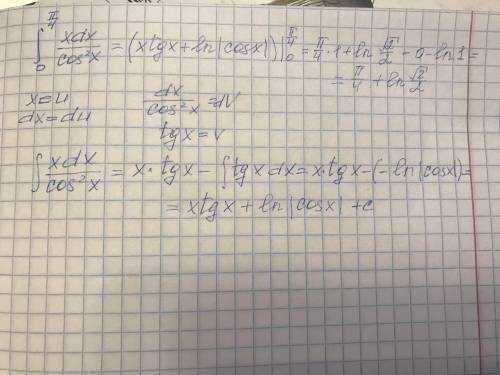 ∫₀^(π/4) xdx/cos²x = (xtgx+ln|cosx|)|₀^(π/4) = π/4·1+ln √2/2 - 0 - ln1 =
= π/4 + ln √2/2
x=u dx/cos²x = dV
dx=du tgx=v
∫ xdx/cos²x = x·tgx - ∫tgxdx = x·tgx-(-ln|cosx|)=
= xtgx+ln|cosx| +c